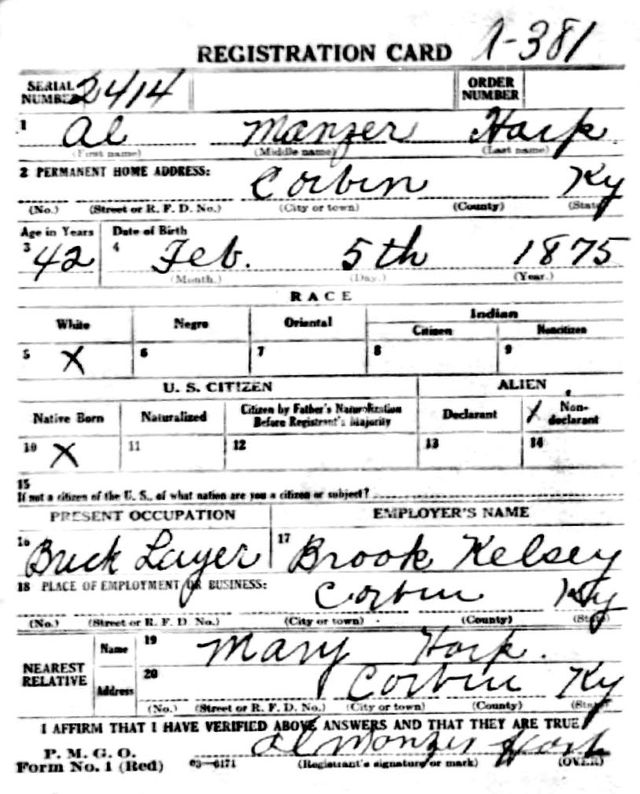 REGISTRATION CARD 1-381
SERIAL NUMBER 2414 ORDER NUMBER
1 Al Manzer Harp
(First name) (Middle name) (Last name)
2 PERMANENT HOME ADDRESS: Corbin Ky
(No.) (Street or R. F. D. No.) (City or town) (County) (State)
Age in Years Date of Birth
3 42 4 Feb. 5th 1875
(Month.) (Day.) (Year.)
RACE
White Negro Oriental Indian
Citizen Noncitizen
5 X 6 7 8 9
U. S. CITIZEN ALIEN
Native Born Naturalized Citizen by Father's Naturalization Before Registrant's Majority Declarant Non-declarant
10 X 11 12 13 14
15
If not a citizen of the U. S., of what nation are you a citizen or subject?
PRESENT OCCUPATION EMPLOYER'S NAME
16 Brick Layer 17 Brook Kelsey
18 PLACE OF EMPLOYMENT OR BUSINESS: Corbin Ky
(No.) (Street or R. F. D. No.) (City or town) (County) (State)
NEAREST RELATIVE Name 19 Mary Harp.
Address 20 Corbin Ky
(No.) (Street or R. F. D. No.) (City or town) (County) (State)
I AFFIRM THAT I HAVE VERIFIED ABOVE ANSWERS AND THAT THEY ARE TRUE
P. M. G. O. Al Manzer Harp
Form No. 1 (Red) 03—6171 (Registrant's signature or mark) (OVER)